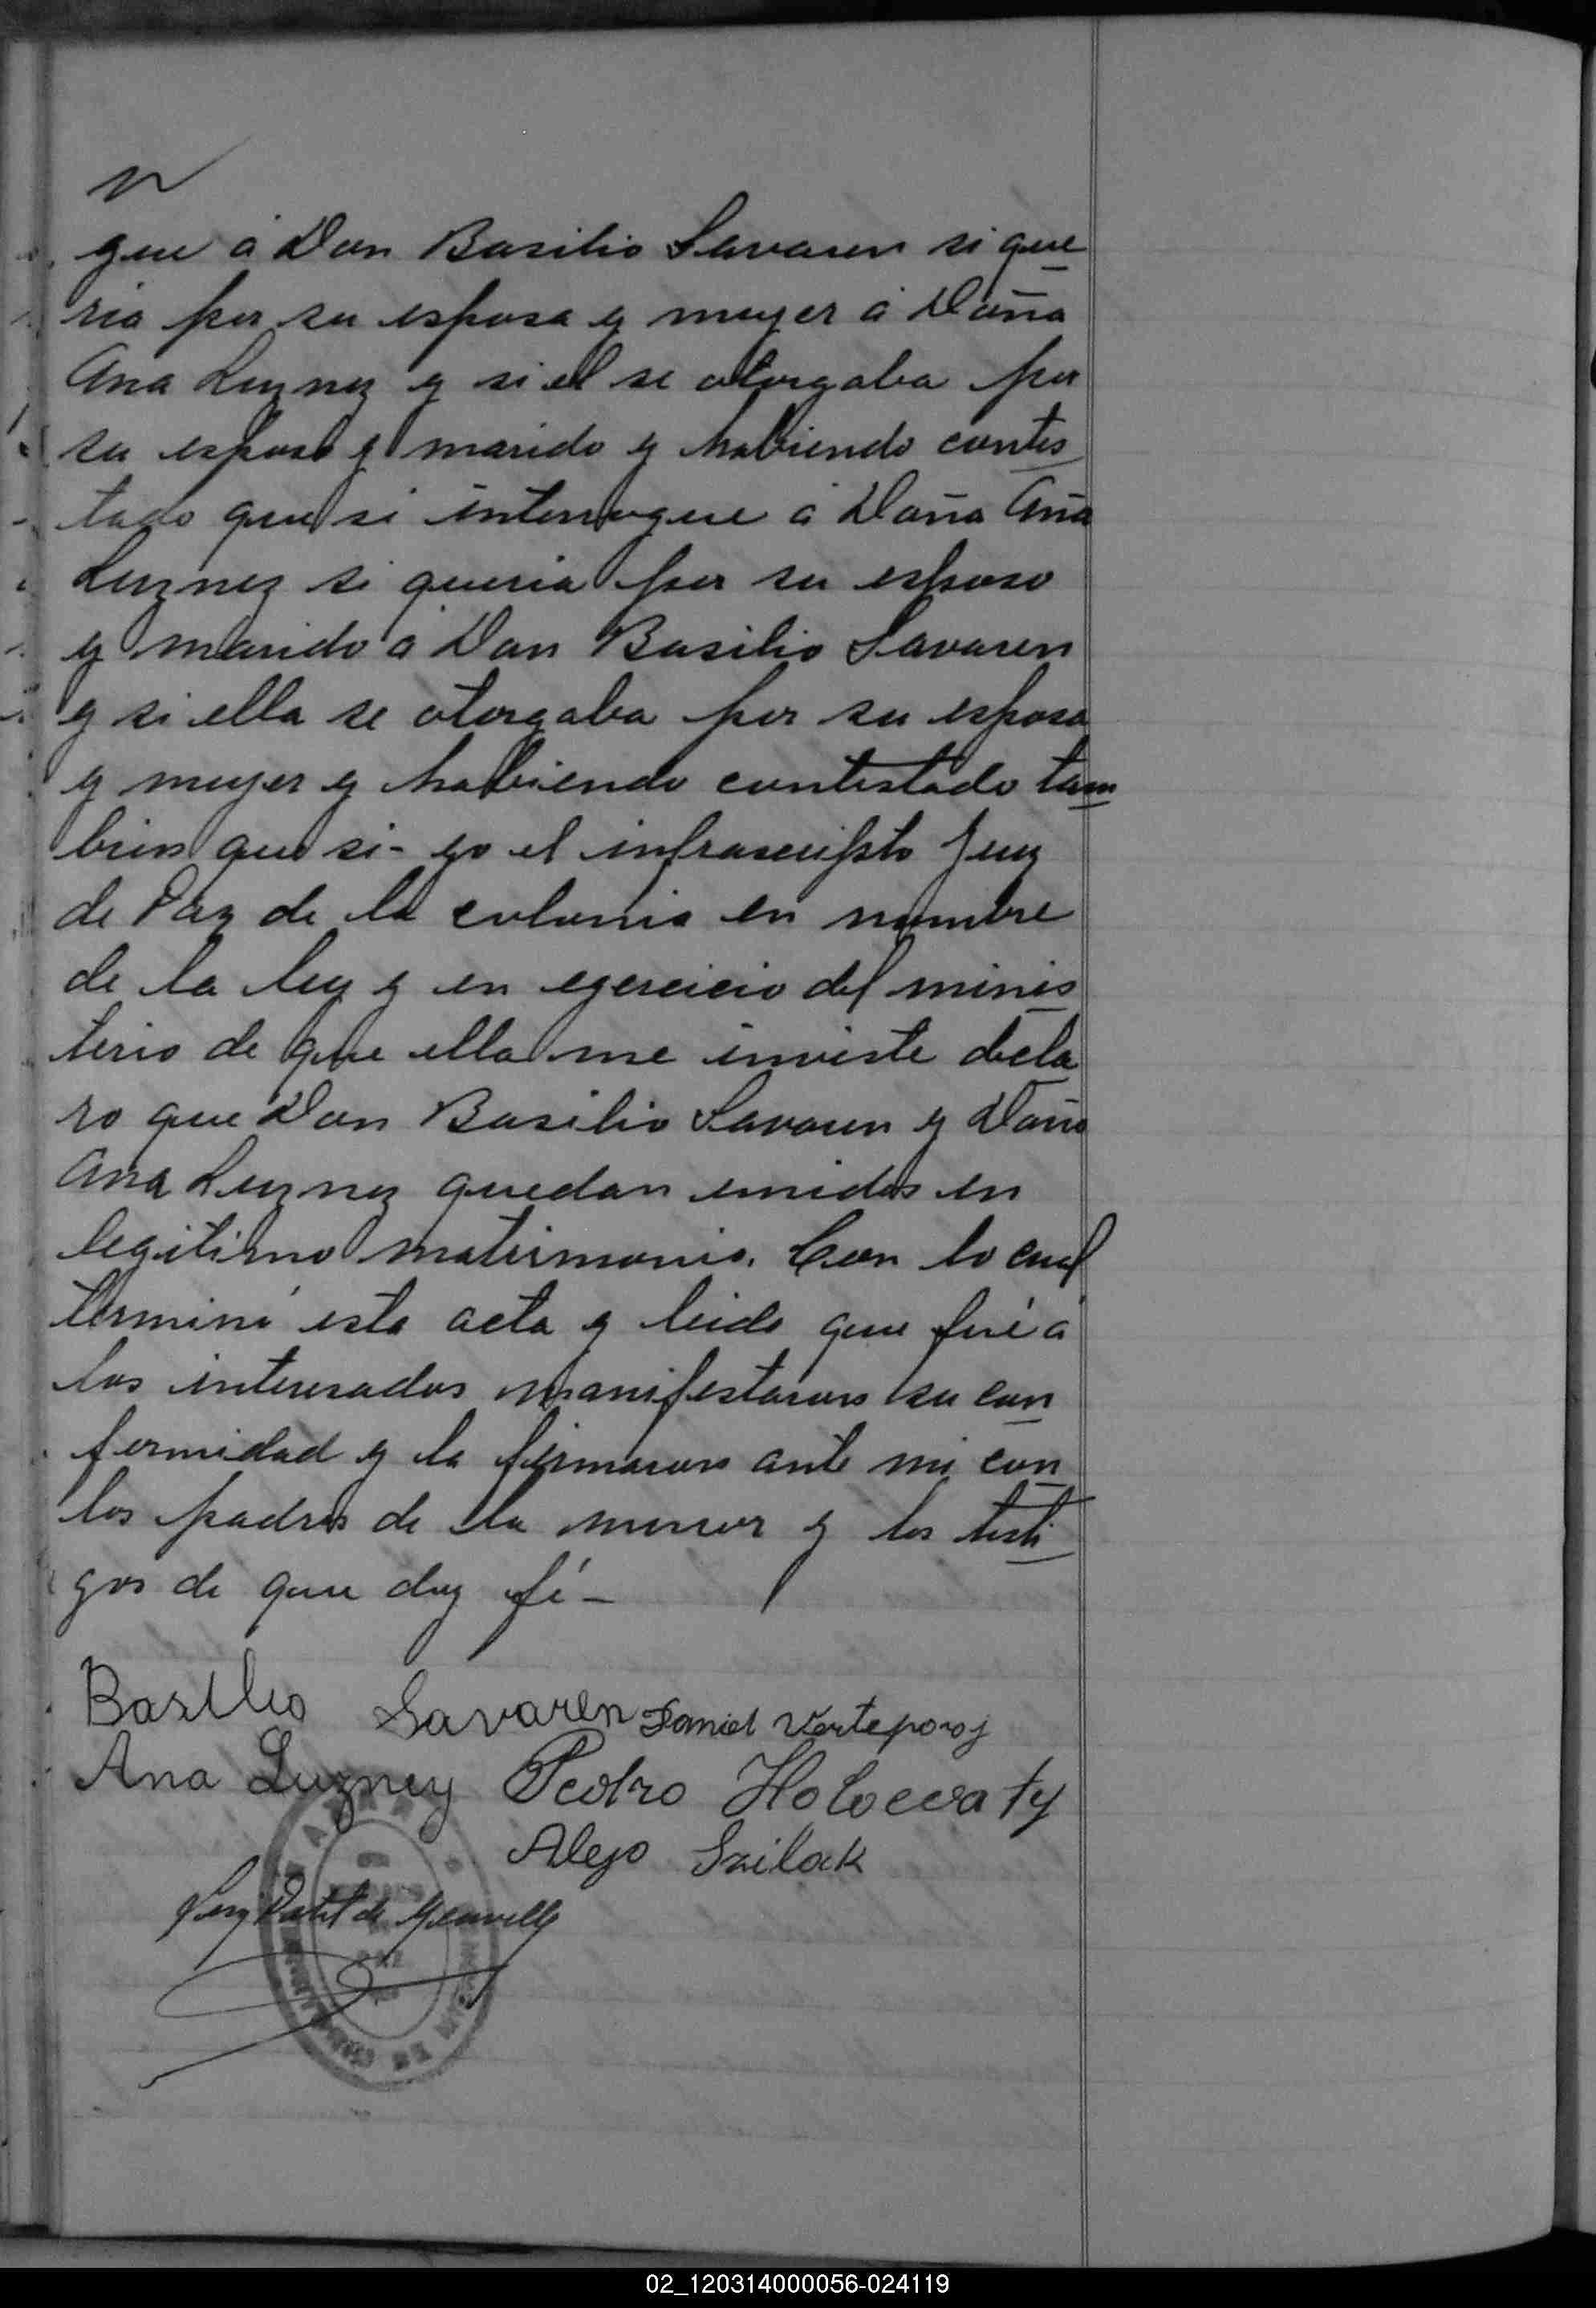 gué á Don Basilio Savaren si que
ria por su esposa y mujer á Doña
Ana Luzney y si el se otorgaba por
su esposo y marido y habiendo contes
tado que si interrogue á Doña Ana
Luzney si queria por su esposo
y marido á Don Basilio Savaren
y si ella se otorgaba por su esposa
y mujer y habiendo contestado tam
bien que si - yo el infrascripto Juez
de Paz de la colonia en nombre
de la ley y en ejercicio del minis
terio de que ella me inviste decla
ro que Don Basilio Savaren y Doña
Ana Luzney quedan unidos en
legitimo matrimonio. Con lo cual
terminé esta acta y leida que fué á
los interesados manifestaron su con
formidad y la firmaron ante mi con
los padres de la menor y los testi
gos de que doy fé -
Basilio Savaren Daniel Verteporoj
Ana Luzney Pedro Holoevaty
Alejo Szilak
02_120314000056-024119